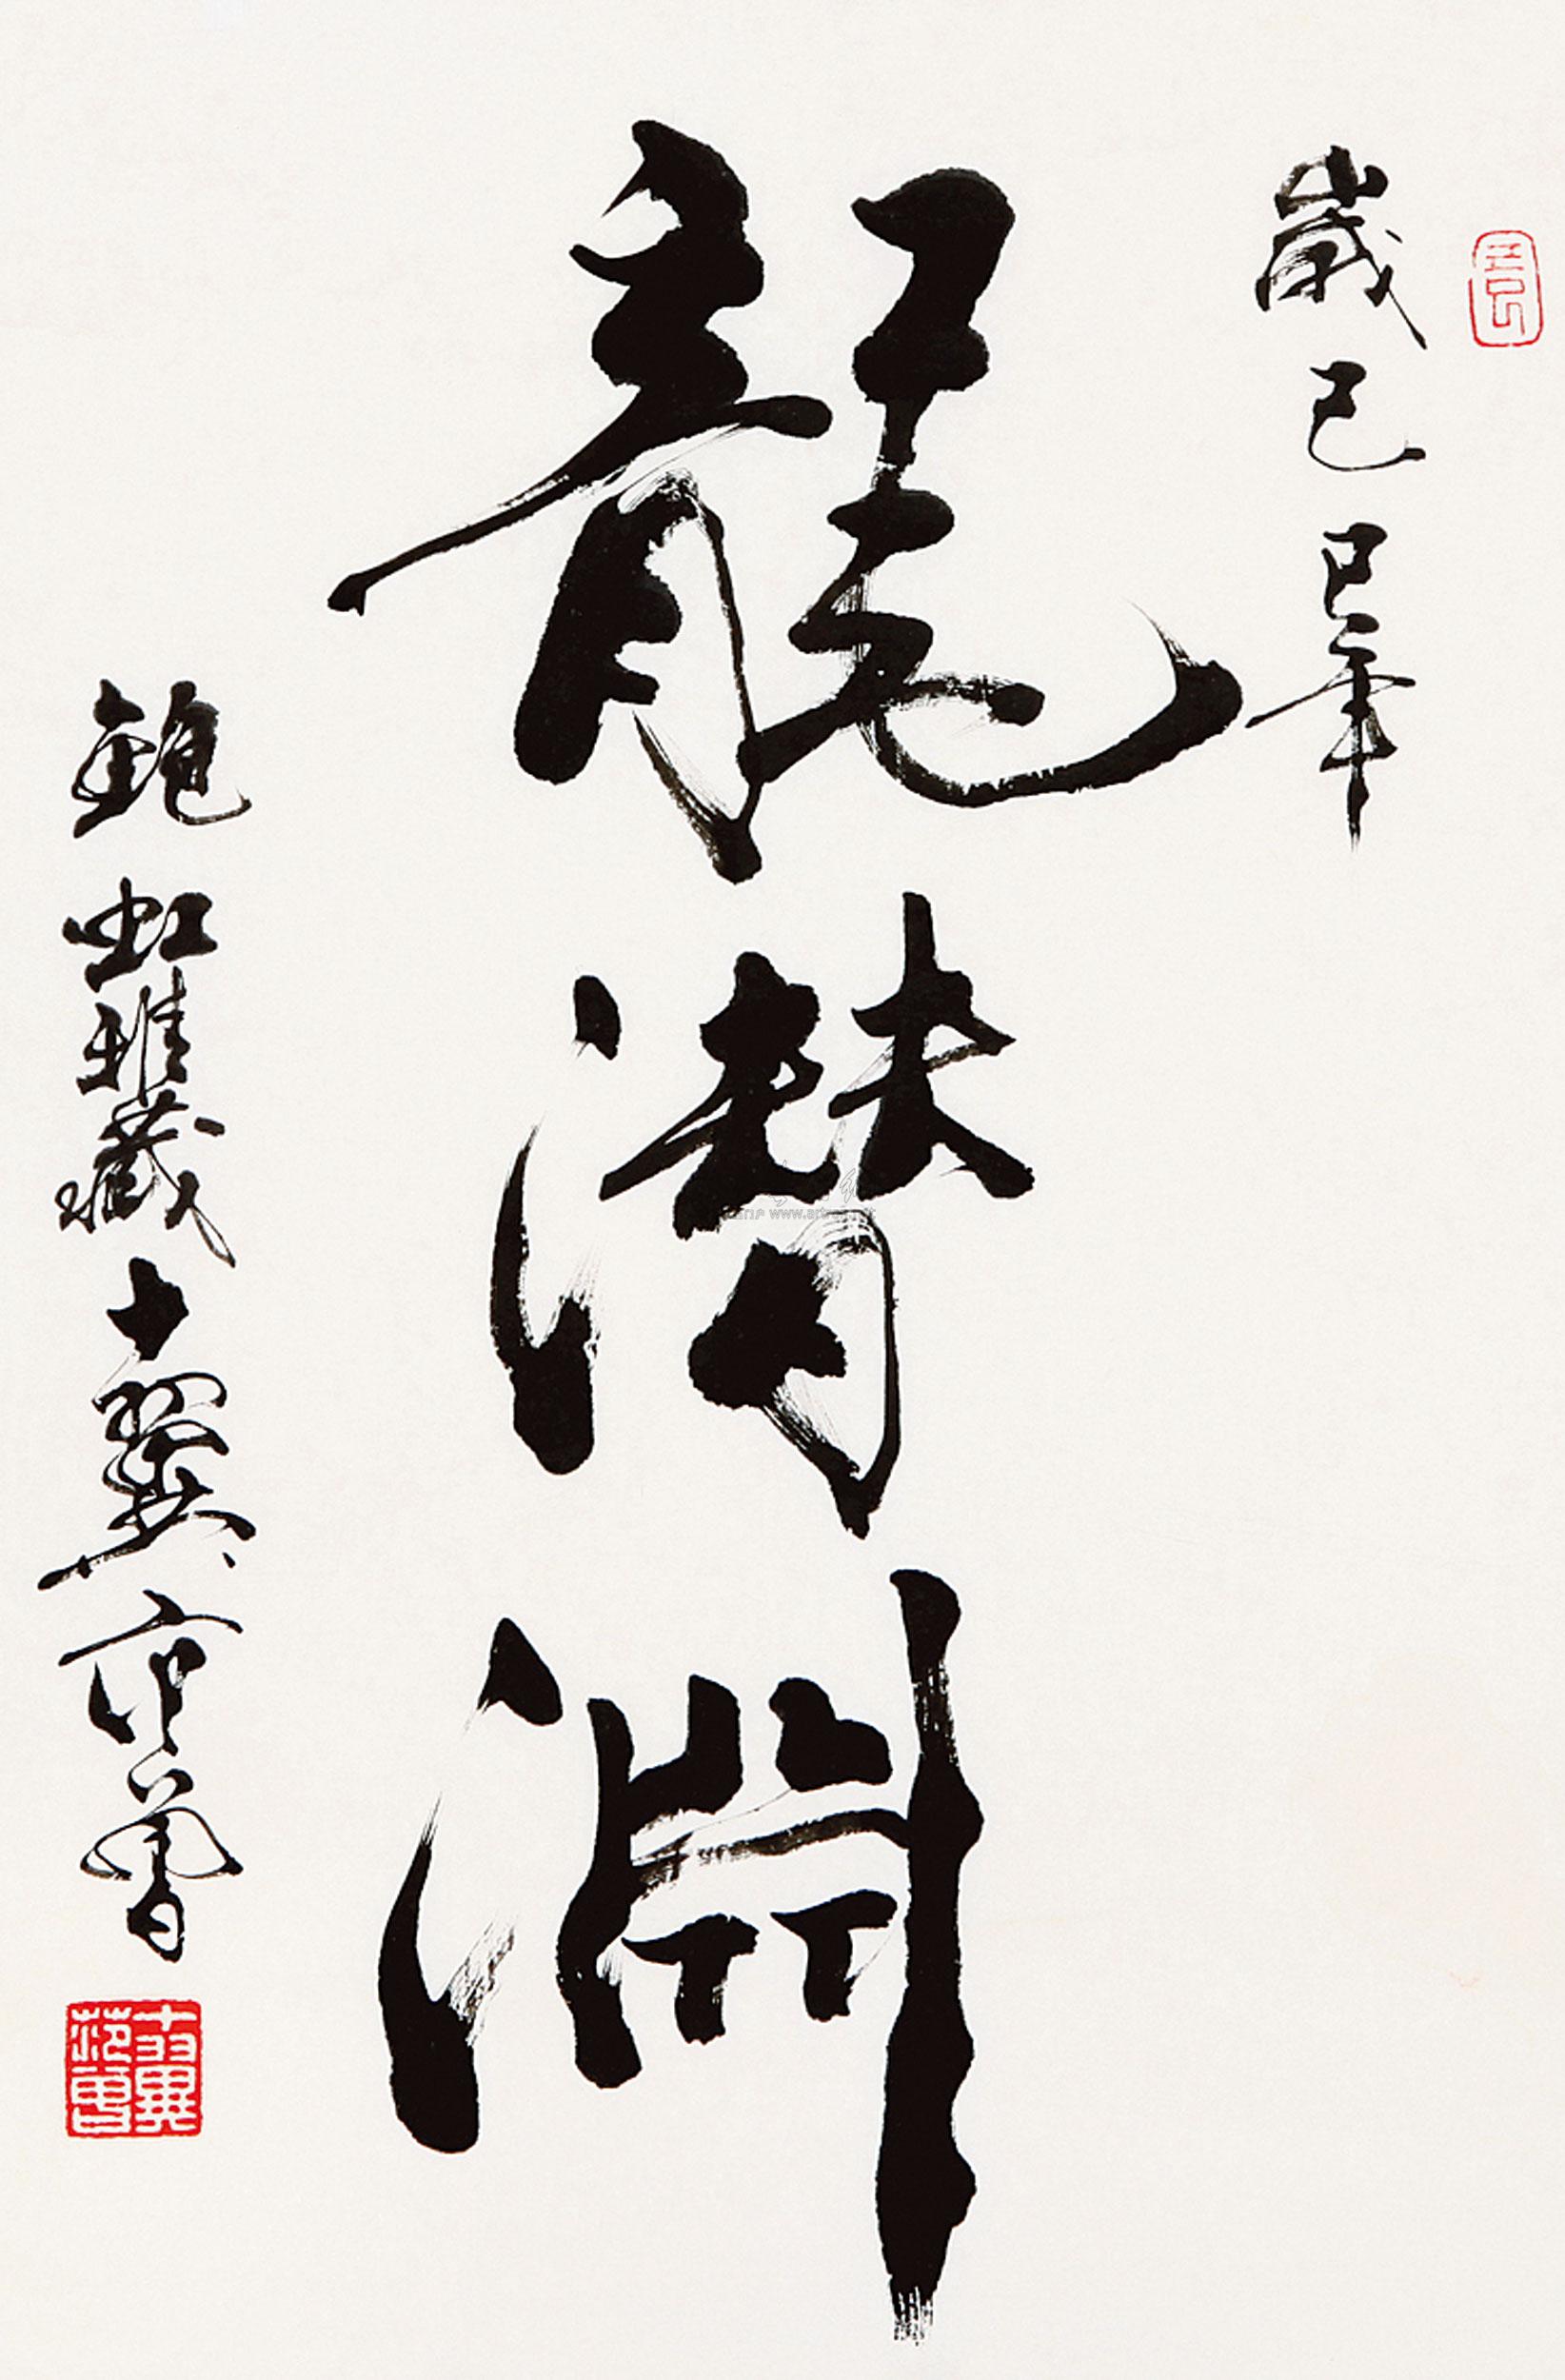 歲己巳年
龍潛淵
鮑虹雅藏十翼范曾
十翼范曾
www.artron.net